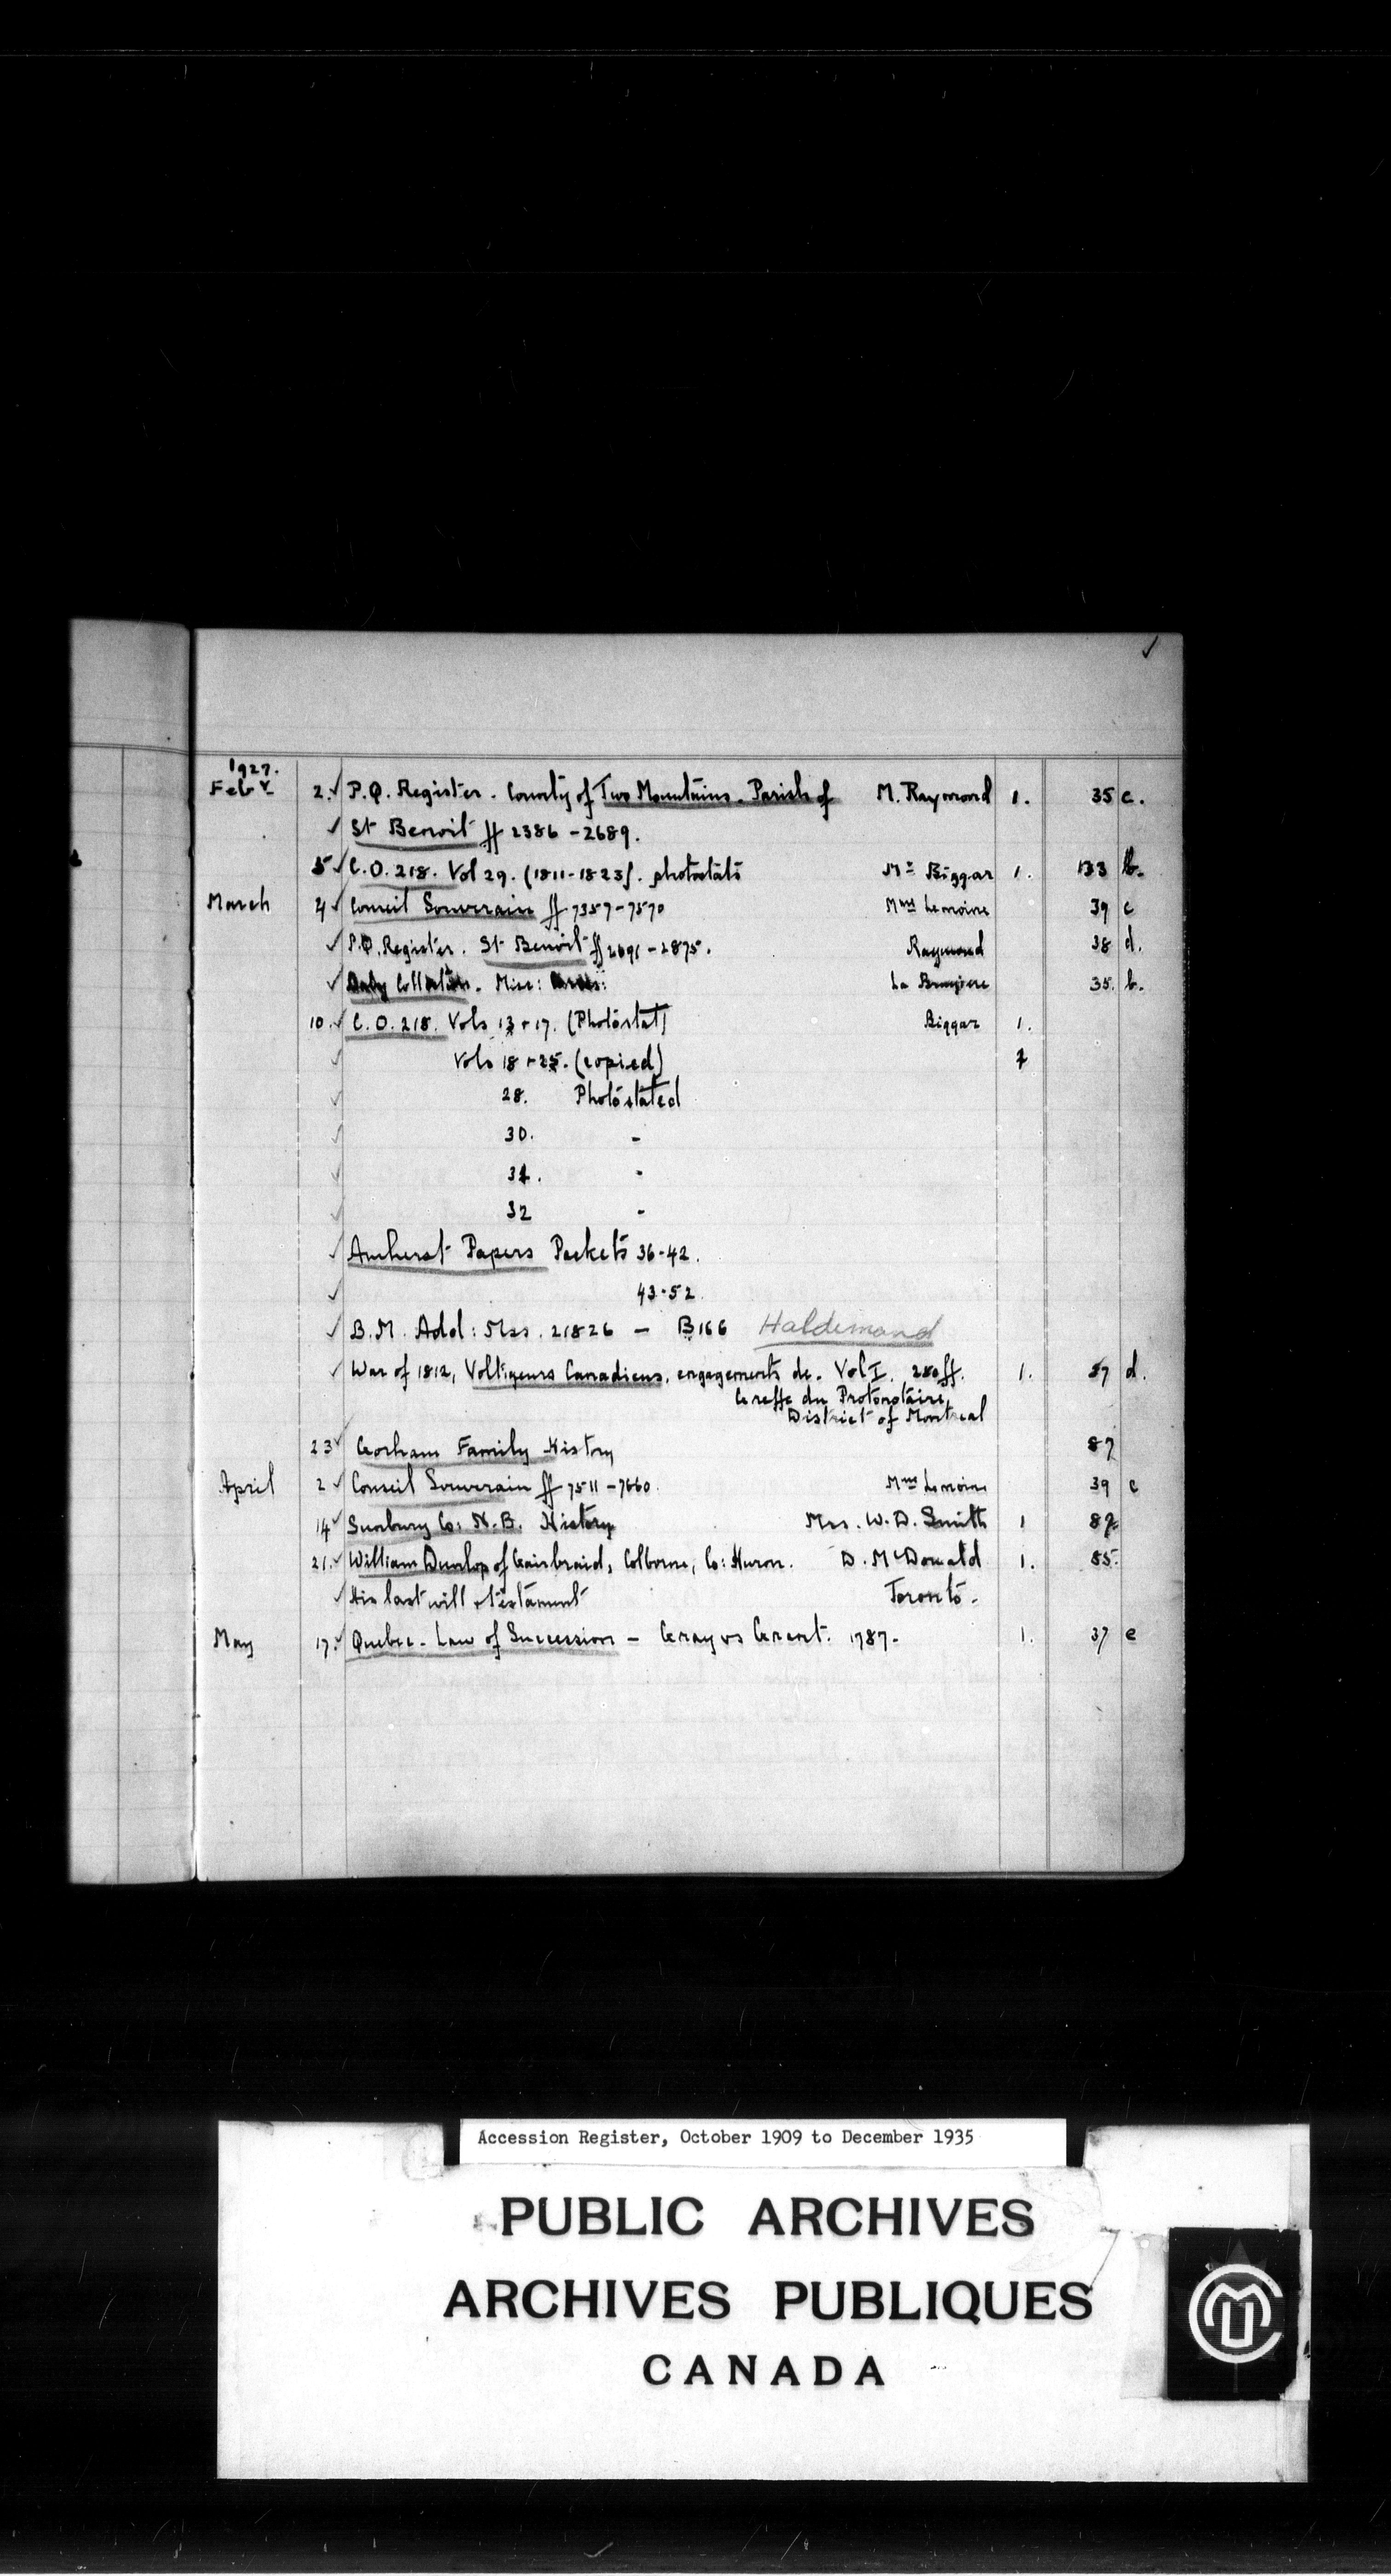 1927.
Feby 2. ✓ P.Q. Register. County of Two Mountains. Parish of M. Raymond 1. 35 c.
✓ St Benoit ff 2386-2689.
5 ✓ C.O. 218. Vol 29. (1811-1823). photostats Mr Biggar 1. 133 b.
March 4 ✓ Conseil Souverain ff 7357-7570 Mme Lemoine 39 c
✓ P.Q. Register. St Benoit ff 2691-2875. Raymond 38 d.
✓ Daly Collection. Misc: La Bruyere 35. b.
10. ✓ C.O. 218. Vols 13 + 17. (Photostat) Biggar 1.
✓ Vols 18 + 25. (copied)
✓ 28. Photostated
✓ 30. -
✓ 31. -
✓ 32 -
✓ Amherst Papers Packets 36-42.
✓ 43-52.
✓ B.M. Add: Mss. 21826 — B166 Haldimand
✓ War of 1812, Voltigeurs Canadiens, engagements de. Vol I. 280 ff. 1. 37 d.
Greffe du Protonotaire,
District of Montreal
23 ✓ Gorham Family History 87
April 2 ✓ Conseil Souverain ff 7511-7660. Mme Lemoine 39 c
14 ✓ Sunbury Co: N.B. History Mrs. W.D. Smith 1 82
21. ✓ William Dunlop of Gairbraid, Colborne, Co: Huron. D. McDonald 1. 85.
✓ His last will + testament Toronto.
May 17. ✓ Quebec - Law of Succession — Gray vs Grant. 1787. 1. 37 e
Accession Register, October 1909 to December 1935
PUBLIC ARCHIVES
ARCHIVES PUBLIQUES
CANADA